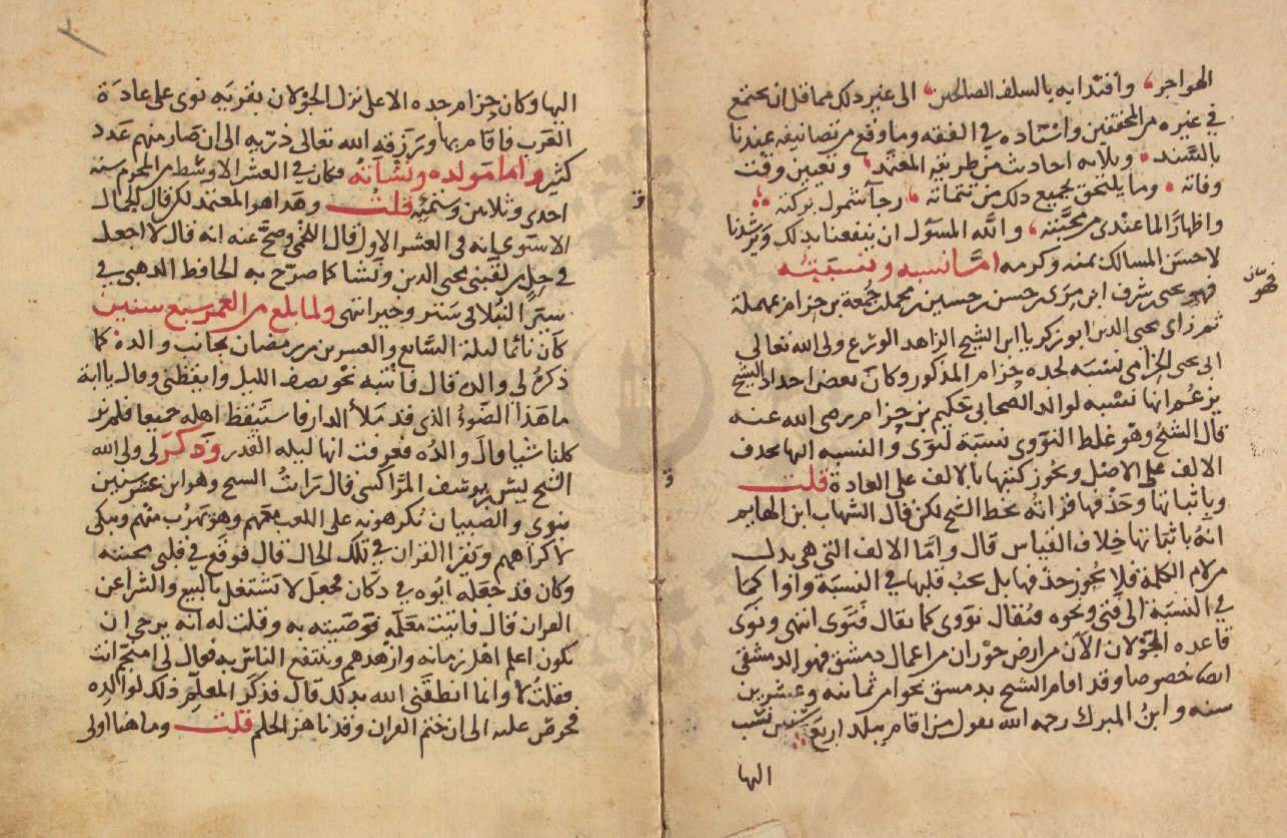 الهواجر، واقتدايه بالسلف الصالحين، الى غير ذلك مما قل ان يجتمع
في غيره من المحققين واسناده في الفقه وما وقع من تصانيفه عندنا
بالسند، وثلاثه احاديث من طريقه المعتمد، وتعيين وقت
وفاته، وما يلتحق بجميع ذلك من تتماته، رجآ شمول بركته
واظهارًا لما عندى من محبته، والله المسؤل ان ينفعنا بذلك ويرشدنا
لاحسن المسالك بمنه وكرمه امّا نسبه ونسبته
فهو يحيى بن شرف ابن مِرَى بن حسن بن حسين بن محمد بن جُمعة بن حِزام بمهملة
ثم زاى محيى الدين ابو زكريا ابن الشيخ الزاهد الورع ولى الله تعالى
ابى يحيى الحِزامى نسبه لجده حِزام المذكور وكان بعض اجداد الشيخ
يزعُم انها نسبه لوالد الصحابى حكيم بن حِزام رضى الله عنه
قال الشيخ وهو غلط النووى نسبة لنوى والنسبه اليها بحذف
الالف على الاصل ويجوز كتبها بالالف على العادة قلت
وباثباتها وحذفها قراته بخط الشيخ لكن قال الشهاب ابن الهايم
انه باثباتها خلاف القياس قال وامّا الالف التى هى بدل
من لام الكلمة فلا يجوز حذفها بل يجب قلبها في النسبة واوا كما
في النسبة الى فتى ونحوه فيُقال نووى كما يقال فتَوى انتهى ونوى
قاعدة الجَوْلان الآن من ارض حَوْران من اعمال دمشق فهو الدمشقى
ايضا خصوصا وقد اقام الشيخ بدمشق نحوا من ثمانيه وعشرين
سنه وابنُ المبرك رحمه الله يقول من اقام ببلد اربَع سنين نسب
اليها
اليها وكان حِزام جده الاعلى نزل الجَوْلان بقربة نوى على عادة
العَرب فاقام بها ورَزقه الله تعالى ذرّيه الى ان صار منهم عَدد
كثير واما مَولده ونشأته فكان في العشر الاوسط من المحرم سنه
احدى وثلاثين وستمئه قلت وهذا هو المعتمد لكن قال الجمال
الاسنوى انه فى العشر الاول قال اللخمى وصحَّ عنه انه قال لا اجعل
في حِل من لقَّبنى محيى الدين ونَشا كما صرّح به الحافظ الذهبى في
سيَر النُبلا فى سَتر وخير انتهى ولما بلغ من العمر سبع سنين
كان نائما ليلة السابع والعشرين من رمضان بجانب والده كما
ذكرَهُ لى والده قال فانتبه نحو نصف الليل وايقظنى وقال ياابة
ما هذا الضوءُ الذى قد مَلأ الدار فاستيقظ اهله جميعا فلم نر
كلنا شيا قال والدُه فعرفت انها ليله القدر وذكرَ لى ولى الله
الشيخ يس بن يوسف المرّاكشى قال رَايتُ الشيخ وهو ابن عشر سنين
بنوى والصبيان يكرهونه على اللعب معَهم وهو يَهرُب منهم ويبكى
لاكراههم ويَقرا القران في تلك الحال قال فوقع في قلبى محبته
وكان قد جعَله ابُوه في دكان فجعَل لا يشتغل بالبيع والشرا عن
القران قال فاتيت معَلّمه فوَصّيته به وقلت له انه يرجى ان
يكون اعلم اهل زمانه وازهدهم وينتفع الناس به فقال لى امنجّم انت
فقلتُ لا وانما انطقَنى الله بذلك قال فذكرَ المعَلّم ذلك لوالِدِه
فحرص عليه الى ان ختم القران وقد ناهز الحلم قلت وما هنا اولى